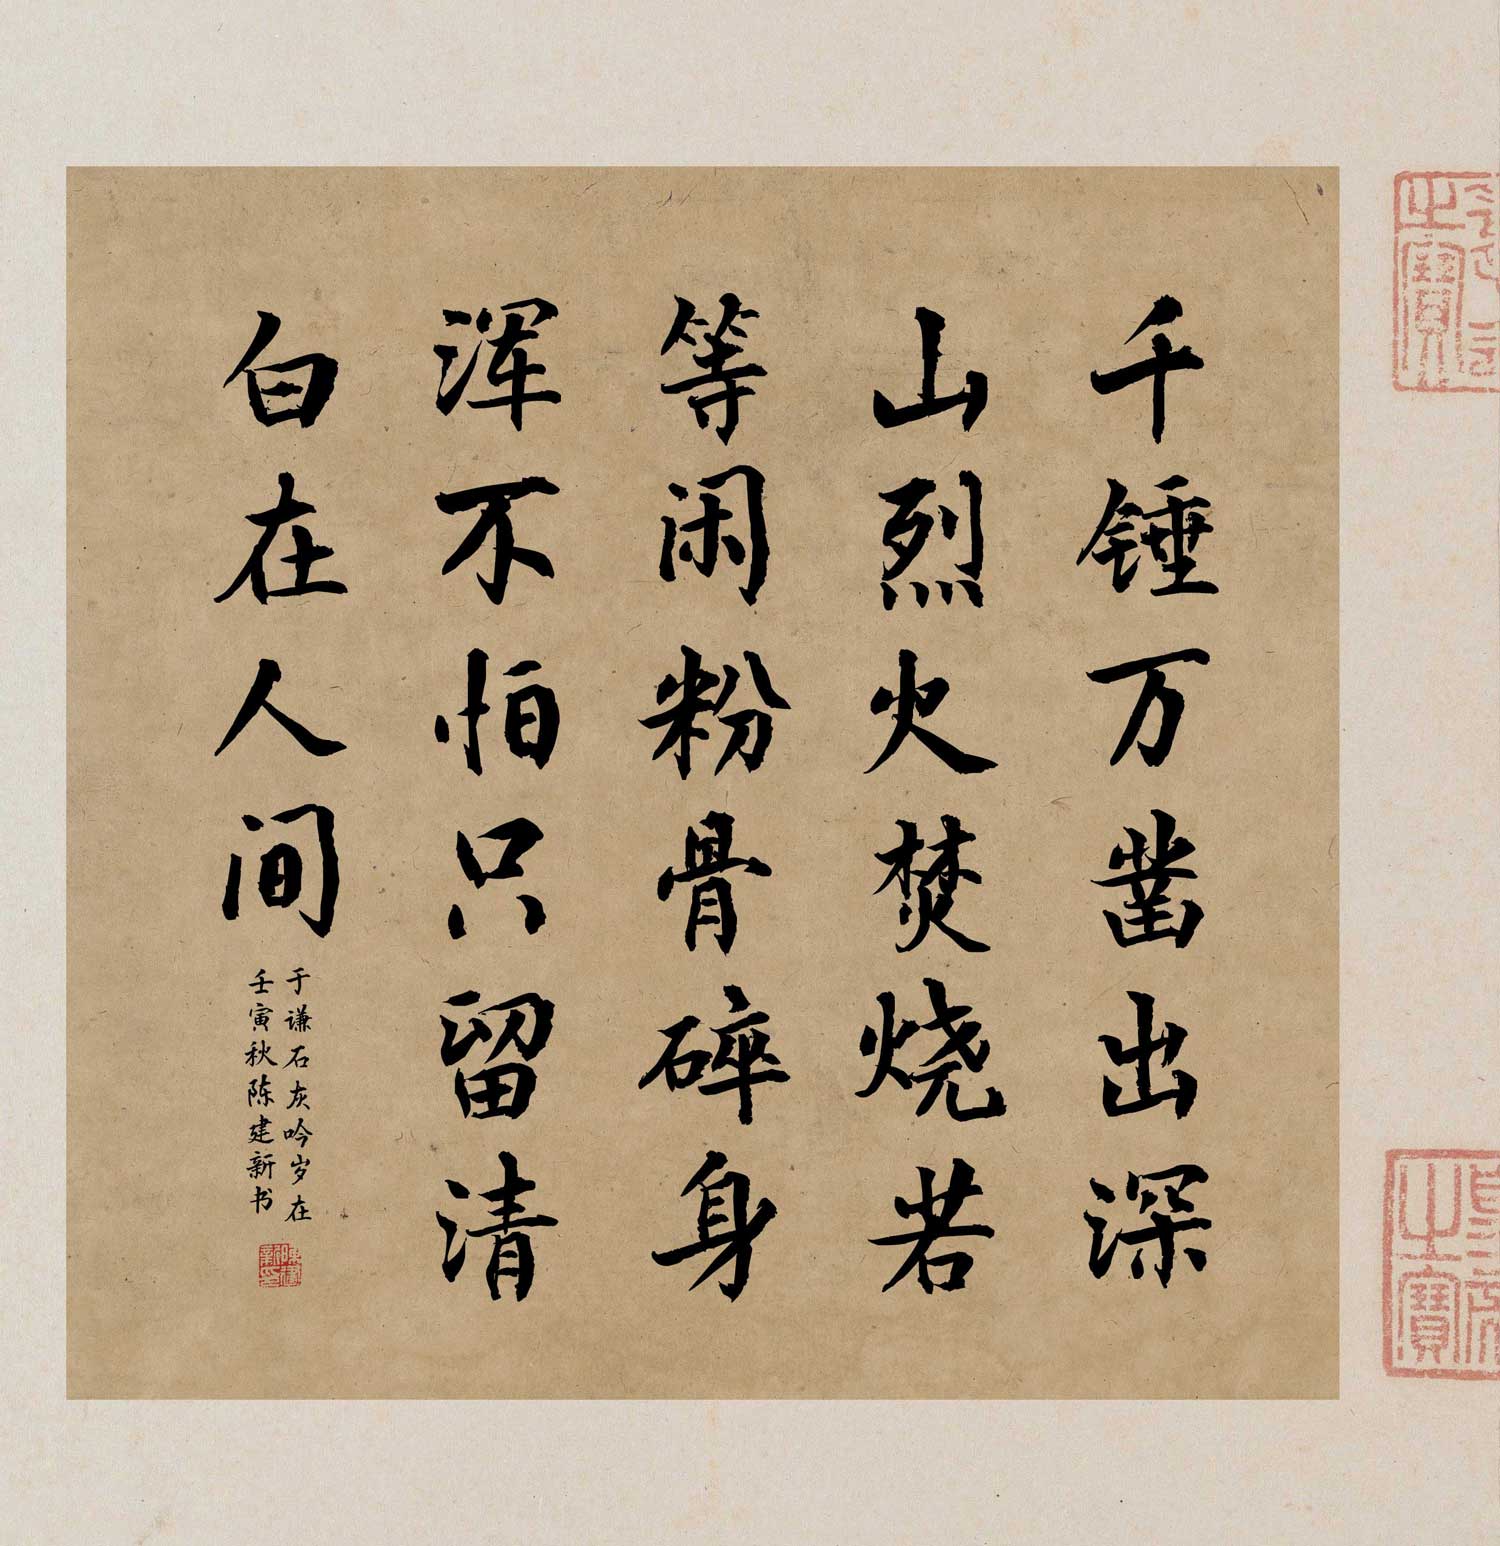 千锤万凿出深
山烈火焚烧若
等闲粉骨碎身
浑不怕只留清
白在人间
于谦石灰吟岁在
壬寅秋陈建新书